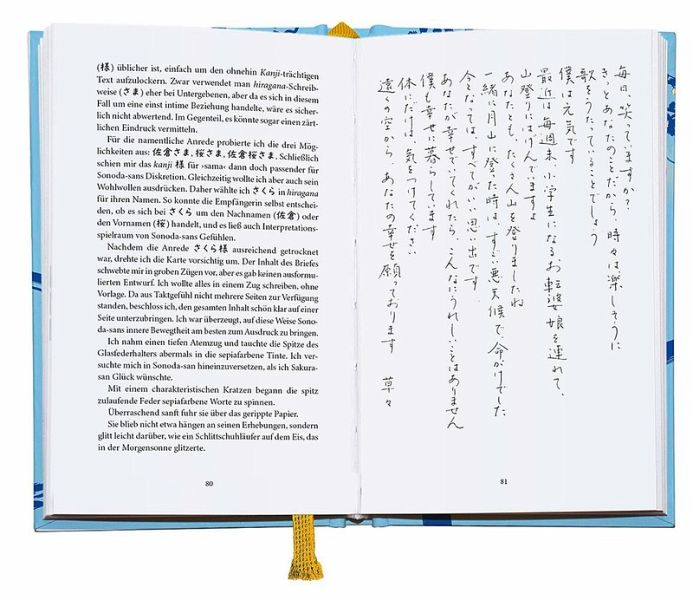 (様) üblicher ist, einfach um den ohnehin Kanji-trächtigen
Text aufzulockern. Zwar verwendet man hiragana-Schreib-
weise (さま) eher bei Untergebenen, aber da es sich in diesem
Fall um eine einst intime Beziehung handelte, wäre es sicher-
lich nicht abwertend. Im Gegenteil, es könnte sogar einen zärt-
lichen Eindruck vermitteln.
Für die namentliche Anrede probierte ich die drei Mög-
lichkeiten aus: 佐倉さま, 桜さま, 佐倉桜さま. Schließlich
schien mir das kanji 様 für »sama« dann doch passender für
Sonoda-sans Diskretion. Gleichzeitig wollte ich aber auch sein
Wohlwollen ausdrücken. Daher wählte ich さくら in hiragana
für ihren Namen. So konnte die Empfängerin selbst entschei-
den, ob es sich bei さくら um den Nachnamen (佐倉) oder
den Vornamen (桜) handelt, und es ließ auch Interpretations-
spielraum von Sonoda-sans Gefühlen.
Nachdem die Anrede さくら様 ausreichend getrocknet
war, drehte ich die Karte vorsichtig um. Der Inhalt des Briefes
schwebte mir in groben Zügen vor, aber es gab keinen ausformu-
lierten Entwurf. Ich wollte alles in einem Zug schreiben, ohne
Vorlage. Da aus Taktgefühl nicht mehrere Seiten zur Verfügung
standen, beschloss ich, den gesamten Inhalt schön klar auf einer
Seite unterzubringen. Ich war überzeugt, auf diese Weise Sono-
da-sans innere Bewegtheit am besten zum Ausdruck zu bringen.
Ich nahm einen tiefen Atemzug und tauchte die Spitze des
Glasfederhalters abermals in die sepiafarbene Tinte. Ich ver-
suchte mich in Sonoda-san hineinzuversetzen, als ich Sakura-
san Glück wünschte.
Mit einem charakteristischen Kratzen begann die spitz
zulaufende Feder sepiafarbene Worte zu spinnen.
Überraschend sanft fuhr sie über das gerippte Papier.
Sie blieb nicht etwa hängen an seinen Erhebungen, sondern
glitt leicht darüber, wie ein Schlittschuhläufer auf dem Eis, das
in der Morgensonne glitzerte.
80
毎日、笑っていますか?
きっとあなたのことだから、時々は楽しそうに
歌をうたっていることでしょう
僕は元気です
最近は毎週末、小学生になるお転婆娘を連れて、
山登りにはげんでいますよ
あなたとも、たくさん山を登りましたね
一緒に月山に登った時は、すごい悪天候で、命がけでした
今となっては、すべてがいい思い出です
あなたが幸せでいてくれたら、こんなにうれしいことはありません
僕も幸せに暮らしています
体にだけは、気をつけてください
遠くの空から、あなたの幸せを願っております 草々
81